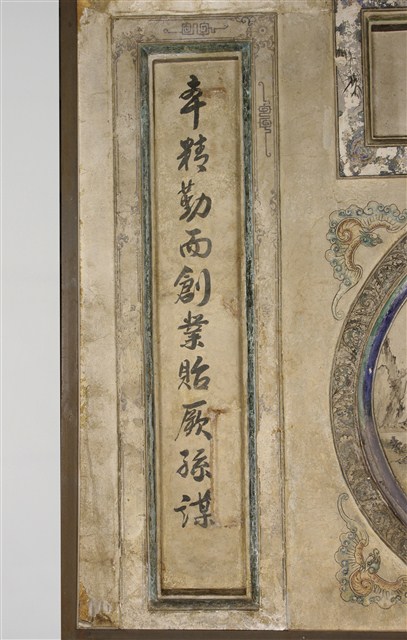 本精勤而創業貽厥孫謀